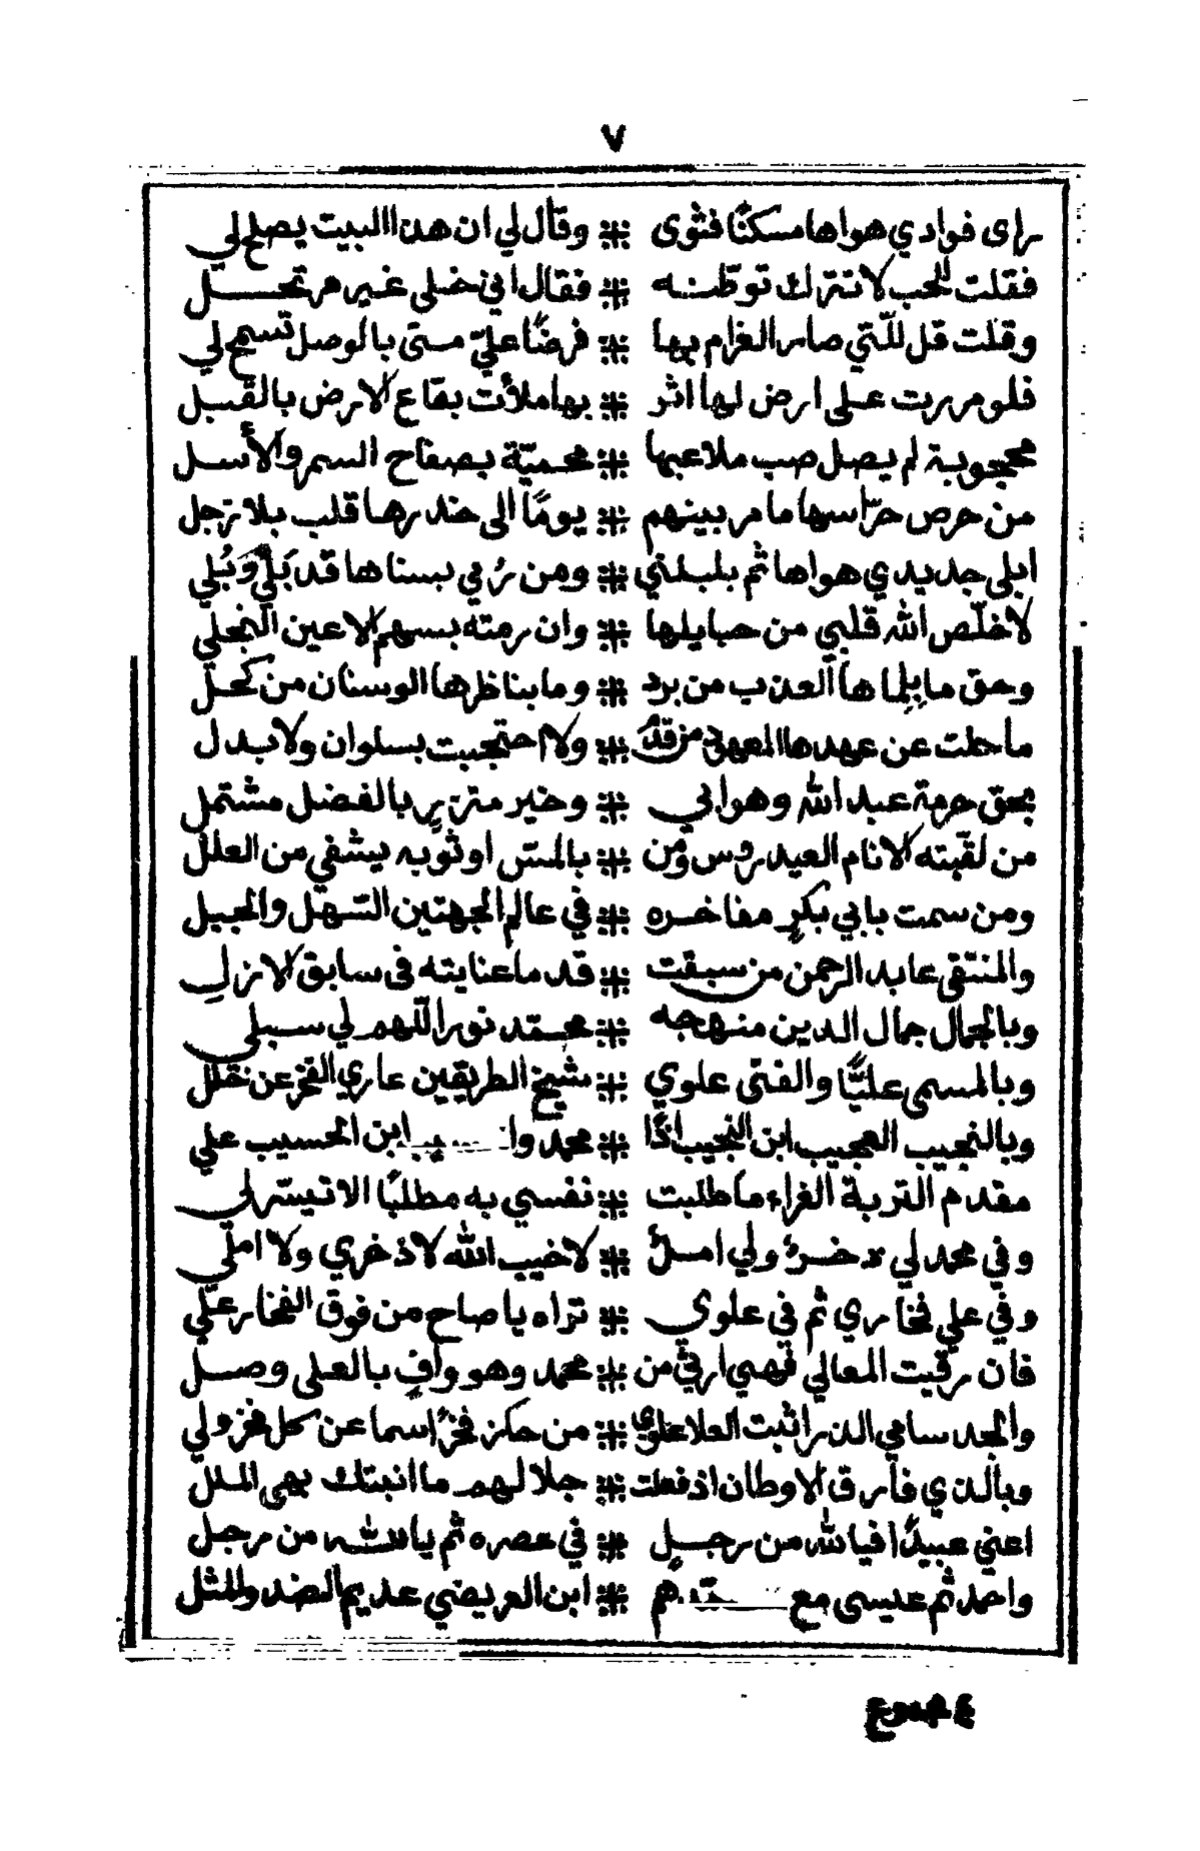 ٧
راى فوادي هواها مسكنًا فثوى ⁜ وقال لي ان هذا البيت يصلح لي
فقلت للحب لا تترك توطنه ⁜ فقال اني خلي غير مرتحل
وقلت قل للّتي صار الغرام بها ⁜ فرضًا عليّ متى بالوصل تسمح لي
فلو مررت على ارض لها اثر ⁜ بها ملأت بقاع الارض بالقبل
محجوبة لم يصل صب ملاعبها ⁜ محميّة بصفاح السمر والأسل
من حرص حرّاسها ما مر بينهم ⁜ يومًا الى خدرها قلب بلا وجل
ابلى جديدي هواها ثم بلبلتي ⁜ ومن رُمي بسناها قد بَلي وَبُلي
لا خلّص الله قلبي من حبايلها ⁜ وان رمته بسهم الاعين النجلي
وحق ما بلماها العذب من برد ⁜ وما بناظرها الوسنان من كحل
ما حلت عن عهدها المعهود من قدم ⁜ ولا احتجبت بسلوان ولا بدل
بحق حرمة عبد الله وهو ابي ⁜ وخير متزرٍ بالفضل مشتمل
من لقبته الانام العيدروس ومن ⁜ بالمس او ثوبه يشفي من العلل
ومن سمت بابي بكرٍ مفاخره ⁜ في عالم الجهتين السهل والجبل
والمنتقى عابد الرحمن من سبقت ⁜ قدما عنايته فى سابق الازلِ
وبالجمال جمال الدين منهجه ⁜ محمّد نور اللهم لي سبلي
وبالمسمى عليًّا والفتى علوي ⁜ شيخ الطريقين عاري الفخر عن خلل
وبالنجيب العجيب ابن النجيب اذًا ⁜ محمد ابن الحسيب علي
مقدم التربة الغراء ما طلبت ⁜ نفسي به مطلبًا الا تيسّر لي
وفي محمد لي ذخرٌ ولي املٌ ⁜ لا خيب الله لا ذخري ولا املي
وفي علي فخاري ثم في علوي ⁜ تراه يا صاح من فوق الفخار علي
فان رقيت المعالي فهي ارقى من ⁜ محمد وهو وافٍ بالعلى وصل
والمجد سامي الذرا ثبت العلا علوي ⁜ من حكز فخرًا سما عن كل فخر ولي
وبالذي فارق الاوطان اذ فعلت ⁜ جلالهم ما انبتك بهى الملل
اعني عبيدًا فيا لله من رجلٍ ⁜ في عصره ثم يا لله من رجل
واحمد ثم عيسى مع ⁜ ابن العريضي عديم الضد والمثل